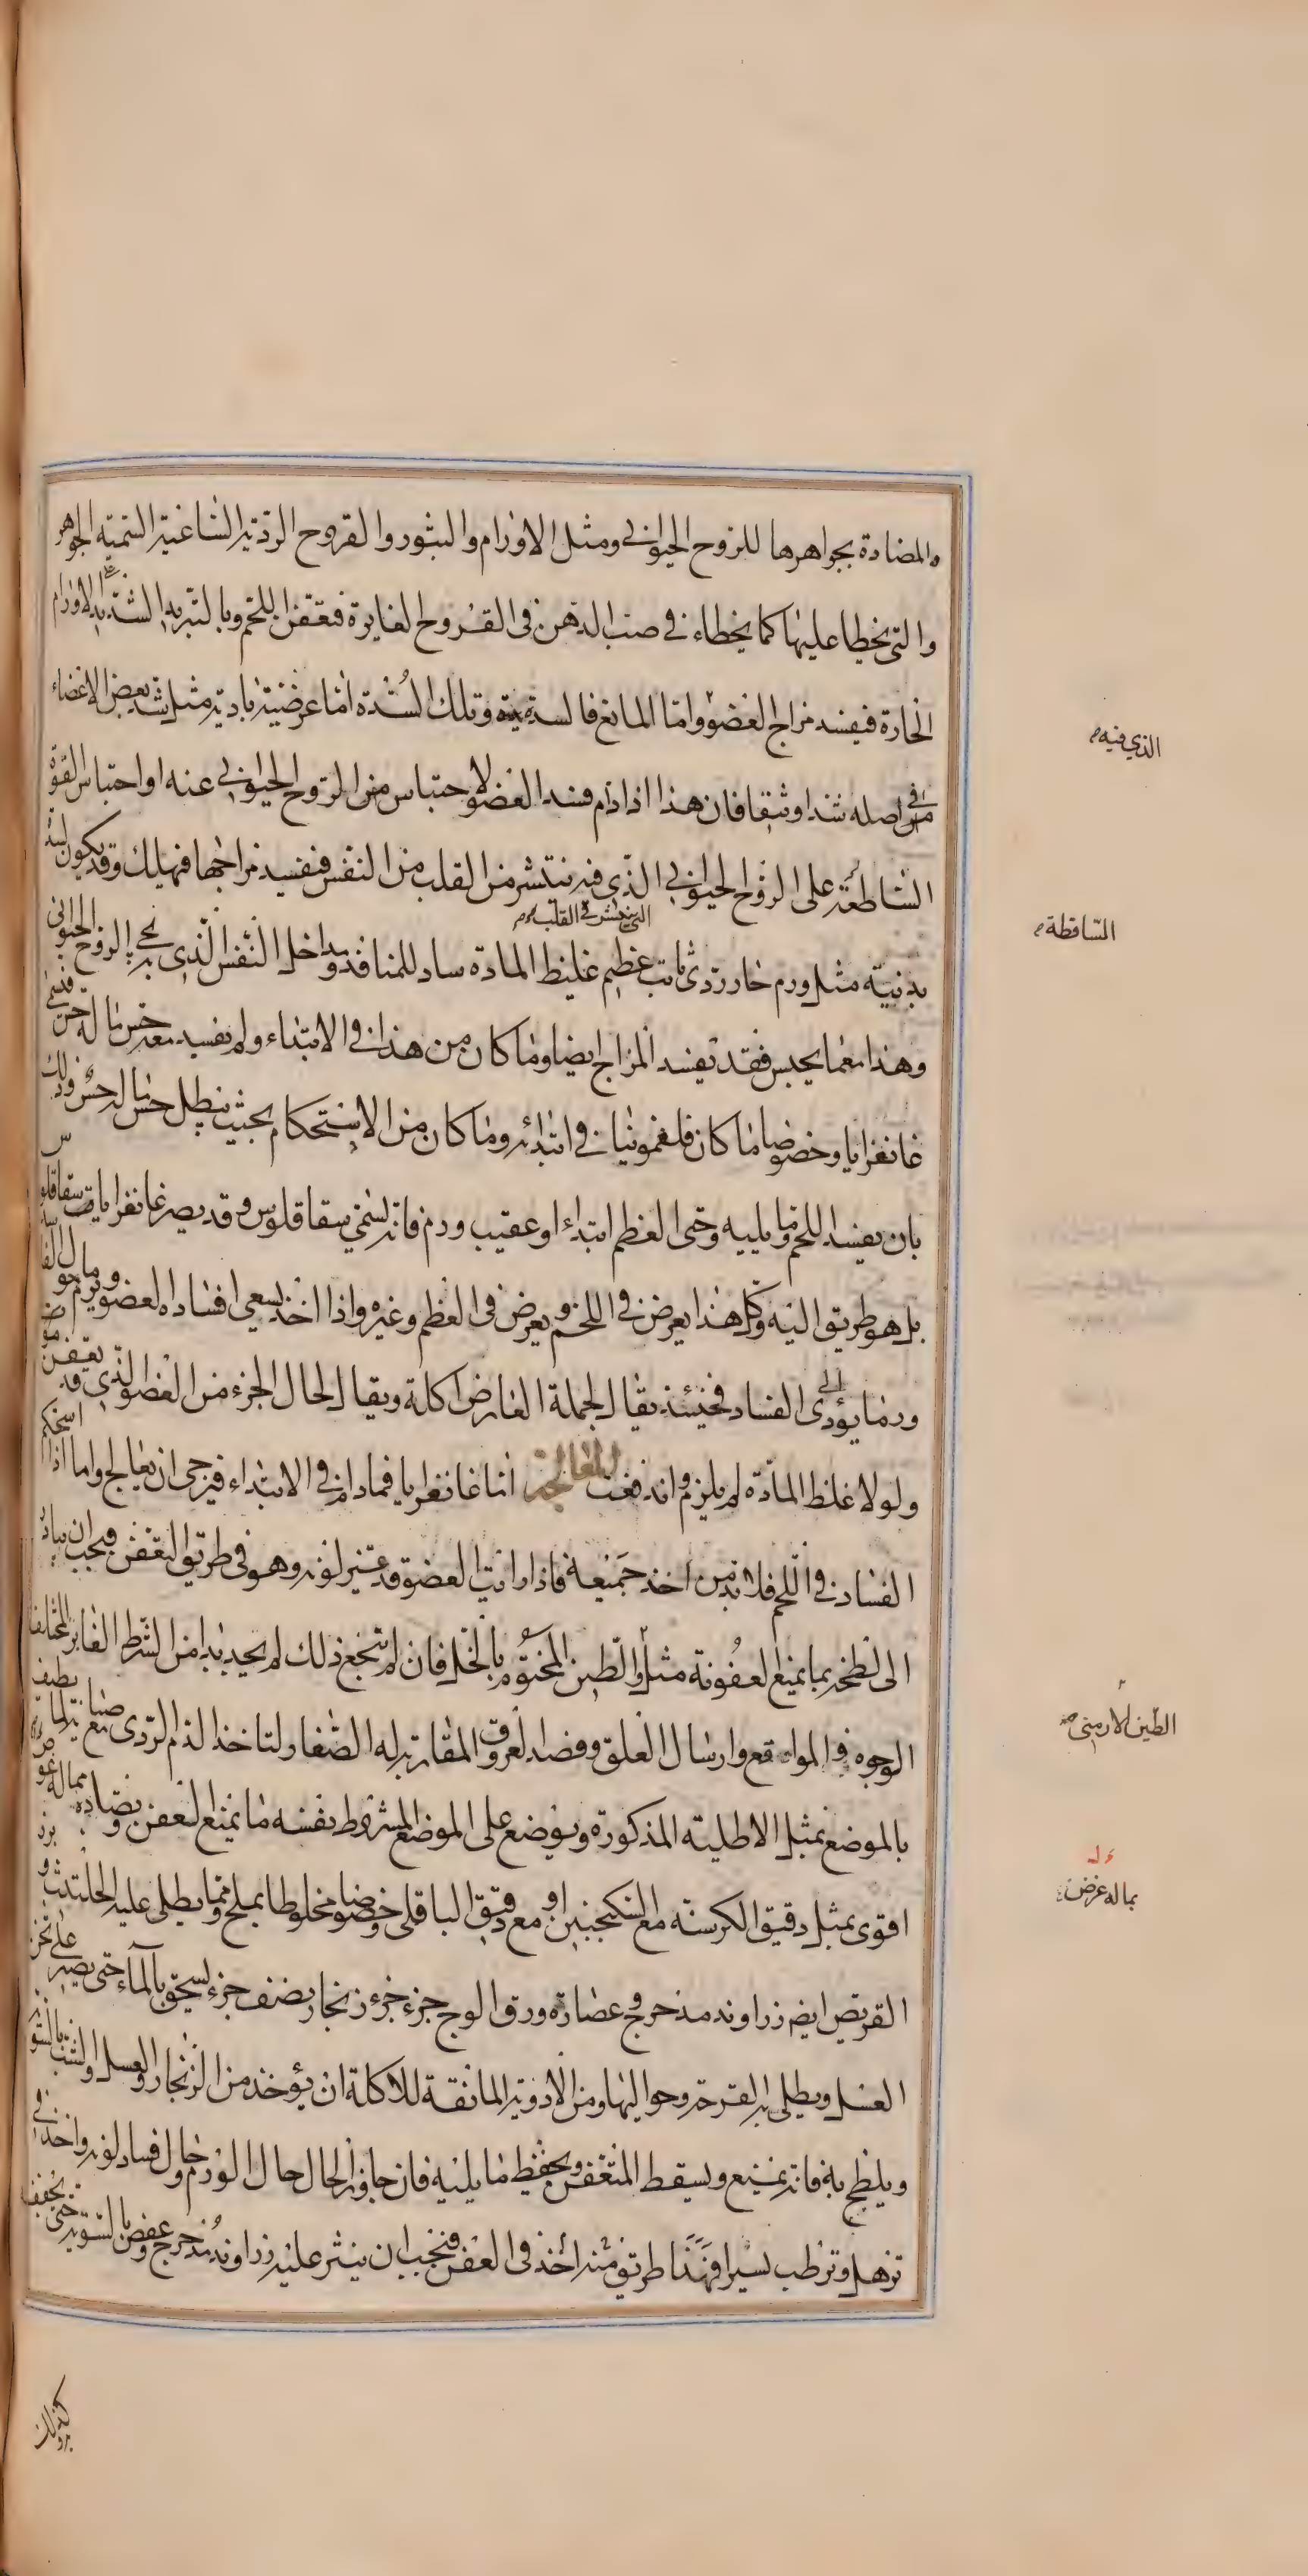 المضادة بجواهرها للروح الحيواني ومثل الاورام والبثور والقروح الردية الساعية السمية الجوهر
والتي يخطا عليها كما يخطاء في صب الدهن في القروح الغايرة فتعفن اللحم وبالتبريد الشديد على الاورام
الحارة فيفسد مزاج العضو واما المانع فالسدة وتلك السدة اما عرضية بادية مثل شد بعض الاعضاء
من اصله شدا وثيقا فان هذا اذا دام فسد العضو لاحتباس الروح الحيواني عنه او احتباس القوة
الساطعة على الروح الحيواني الذي فيه تنتشر من القلب من النفس فيفسد مزاجها فيهلك وقد يكون لسد
الذي ينتشر في القلب
بدنية مثل ورم حار ردى ثابت عظيم غليظ المادة ساد للمنافذ ومداخل النفس الذي به يحيى الروح الحيوانى
وهذا معما يحبس فقد يفسد المزاج ايضا وما كان من هذا في الابتداء ولم يفسد معه حس ما له حس فيسمى
غانغرايا وخصوصا ما كان فلغمونيا في ابتدائه وما كان من الاستحكام بحيث يبطل حس ما له حس وذلك
بان يفسد اللحم وما يليه وحتى العظم ابتداء او عقيب ورم فانه يسمى سقاقلوس وقد يصير غانغرايا سقاقلوس
بل هو طريق اليه وكل هذا يعرض في اللحم ويعرض في العظم وغيره واذا اخذ يسعى افساده العضو ويرم ما حوالى الفاسد
وربما يؤدى الى الفساد فحينئذ يقال لجملة العارض اكلة ويقال لحال الجزء من العضو الذي قد يعفن موت
ولولا غلظ المادة لم يلزم واندفعت المعالجة اما غانغرايا فمادام في الابتداء فيرجى ان يعالج واما اذا استحكم
الفساد في اللحم فلا بد من اخذ جميعه فاذا رايت العضو قد تغير لونه وهو في طريق التعفن فيجب ان يبادر
الى لطخه بما يمنع العفونة مثل والطين المختوم بالخل فان لم ينجع ذلك لم يجد بدا من الشرط الغاير المختلف
الوجوه في المواقع وارسال العلق وفصد العروق المقاربة له الصغار لتاخذ الدم الردى مع صيانة لما يطيف
بالموضع بمثل الاطلية المذكورة ويوضع على الموضع المشروط نفسه ما يمنع العفن ويضاده مما له غوص
اقوى بمثل دقيق الكرسنة مع السكنجبين او مع دقيق الباقلى خصوصا مخلوطا بملح ومما يطلى عليه الحلتيت وبزر
القريص ايضا زراوند مدحرج وعصارة ورق الخوخ جزء جزء زنجار نصف جزء يسحق بالماء حتى يصير على ثخن
العسل ويطلى به القرحة وحواليها ومن الادوية المانعة للاكلة ان يؤخذ من الزنجار والعسل والشب بالسوية
ويلطخ به فانه يمنع ويسقط المتعفن ويحفظ ما يليه فان جاوز الحال حال الورم وحال فساد لونه واخذ في
ترهل وترطب يسيرا فهذا طريق منه اخذ في العفن فيجب ان ينثر عليه زراوند مدحرج وعفص بالسوية حتى يجفف
الذي فيه
الساقطة
الطين الارمنى
بماله غرض